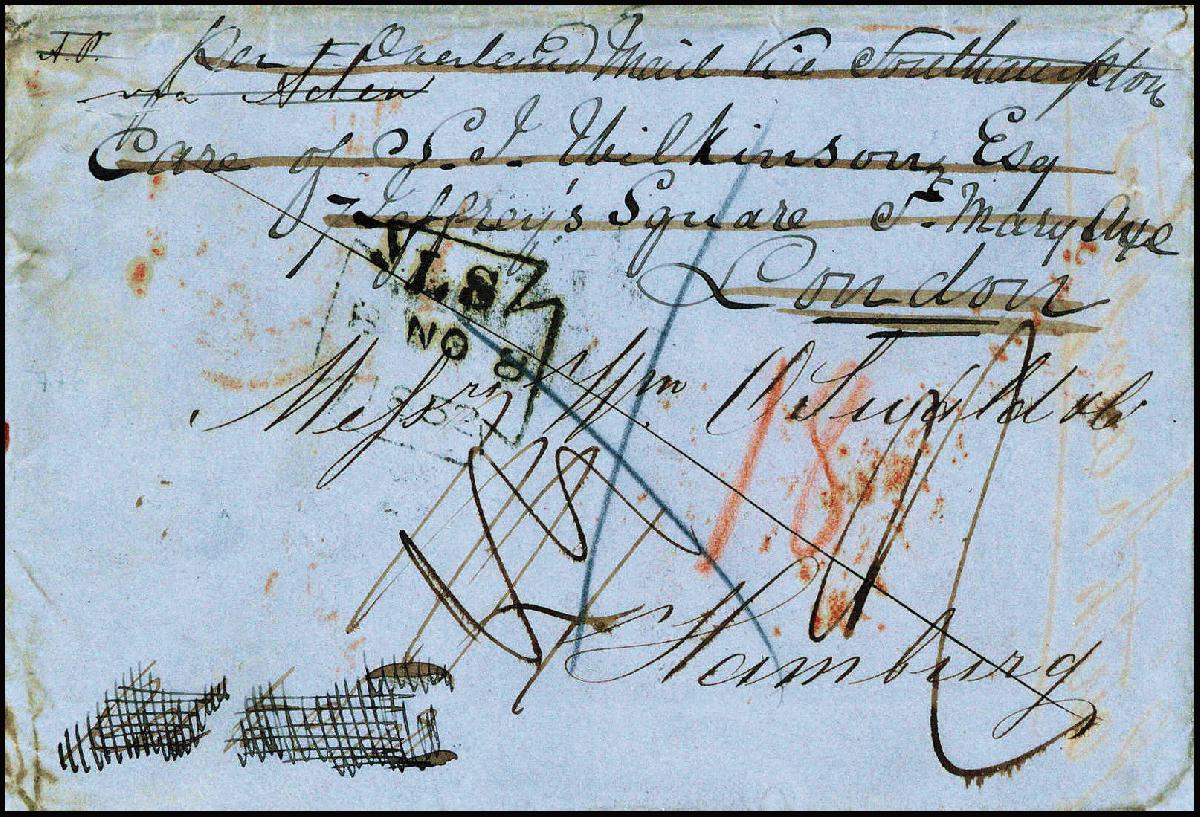 A.P.
Per Overland Mail Via Southampton
via Aden
Care of S. J. Wilkinson, Esq
7 Jeffrey's Square St. Mary Axe
London
LS
NO 8
52
Messrs Wm O'Swald &c
18
Hamburg